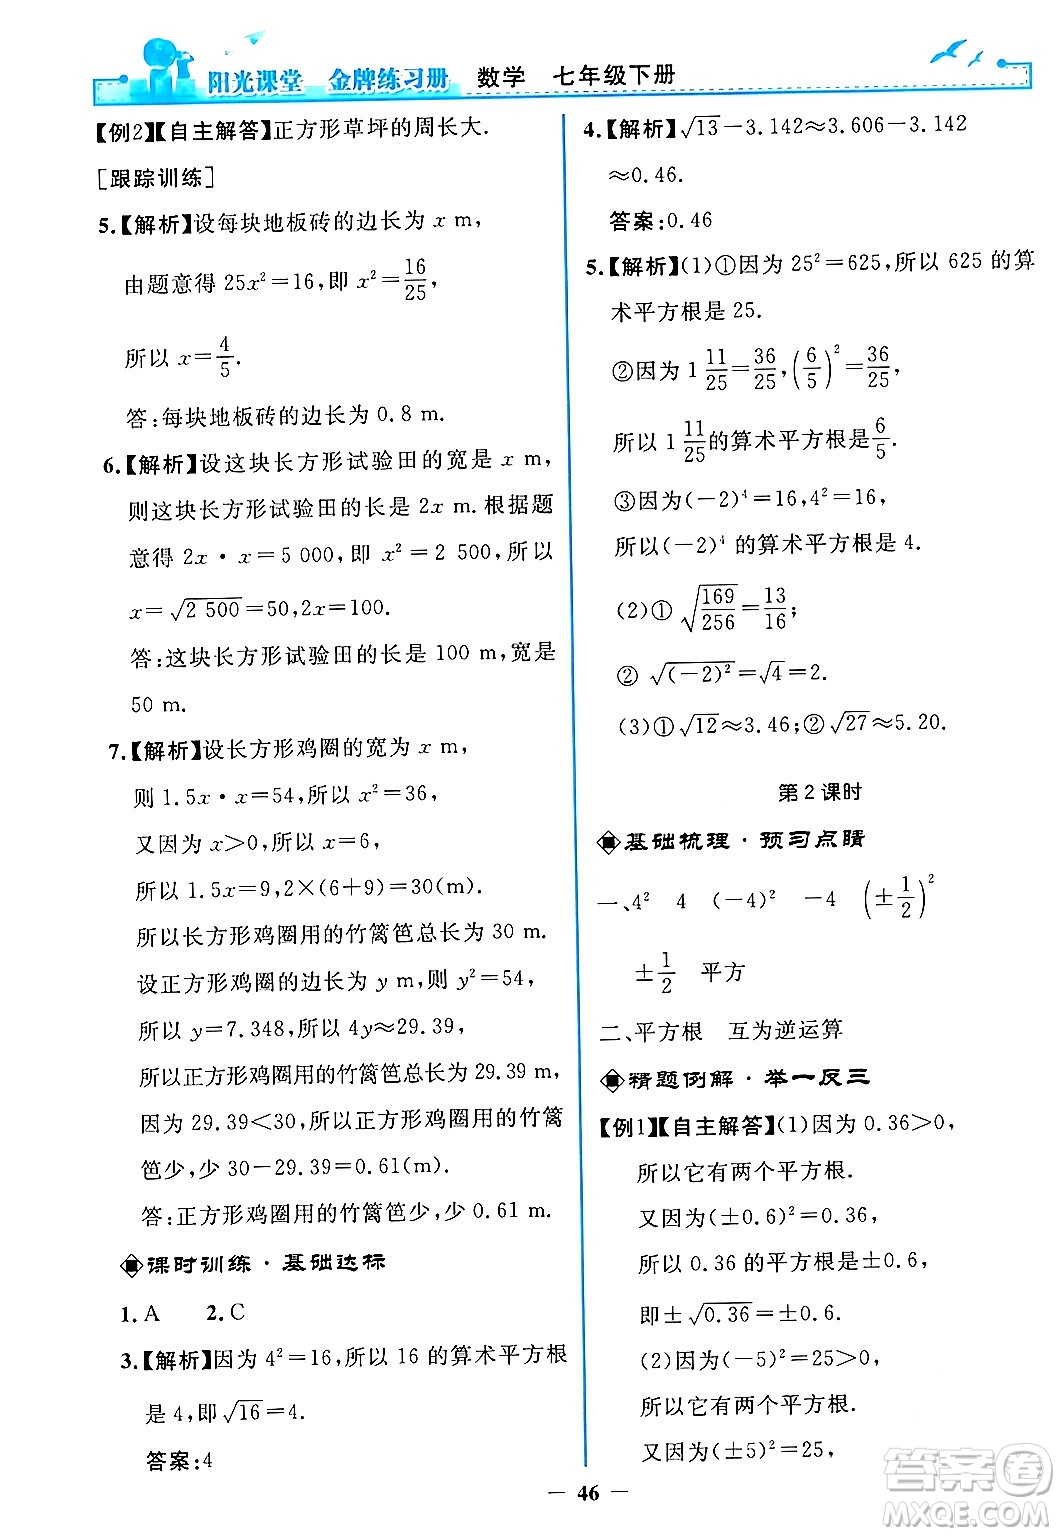 阳光课堂　金牌练习册　数学　七年级下册
【例2】【自主解答】正方形草坪的周长大.
[跟踪训练]
5.【解析】设每块地板砖的边长为 x m,
由题意得 25x²=16,即 x²=16/25,
所以 x=4/5.
答:每块地板砖的边长为 0.8 m.
6.【解析】设这块长方形试验田的宽是 x m,
则这块长方形试验田的长是 2x m.根据题
意得 2x·x=5 000,即 x²=2 500,所以
x=√2 500=50,2x=100.
答:这块长方形试验田的长是 100 m,宽是
50 m.
7.【解析】设长方形鸡圈的宽为 x m,
则 1.5x·x=54,所以 x²=36,
又因为 x>0,所以 x=6,
所以 1.5x=9,2×(6+9)=30(m).
所以长方形鸡圈用的竹篱笆总长为 30 m.
设正方形鸡圈的边长为 y m,则 y²=54,
所以 y=7.348,所以 4y≈29.39,
所以正方形鸡圈用的竹篱笆总长为 29.39 m,
因为 29.39<30,所以正方形鸡圈用的竹篱
笆少,少 30-29.39=0.61(m).
答:正方形鸡圈用的竹篱笆少,少 0.61 m.
课时训练·基础达标
1.A　2.C
3.【解析】因为 4²=16,所以 16 的算术平方根
是 4,即√16=4.
答案:4
4.【解析】√13-3.142≈3.606-3.142
≈0.46.
答案:0.46
5.【解析】(1)①因为 25²=625,所以 625 的算
术平方根是 25.
②因为 1 11/25=36/25,(6/5)²=36/25,
所以 1 11/25的算术平方根是6/5.
③因为(-2)⁴=16,4²=16,
所以(-2)⁴ 的算术平方根是 4.
(2)①√(169/256)=13/16;
②√(-2)²=√4=2.
(3)①√12≈3.46;②√27≈5.20.
第 2 课时
基础梳理·预习点睛
一、4²　4　(-4)²　-4　(±1/2)²
±1/2　平方
二、平方根　互为逆运算
精题例解·举一反三
【例1】【自主解答】(1)因为 0.36>0,
所以它有两个平方根.
又因为(±0.6)²=0.36,
所以 0.36 的平方根是±0.6,
即±√0.36=±0.6.
(2)因为(-5)²=25>0,
所以它有两个平方根.
又因为(±5)²=25,
46
答案圈
MXQE.COM